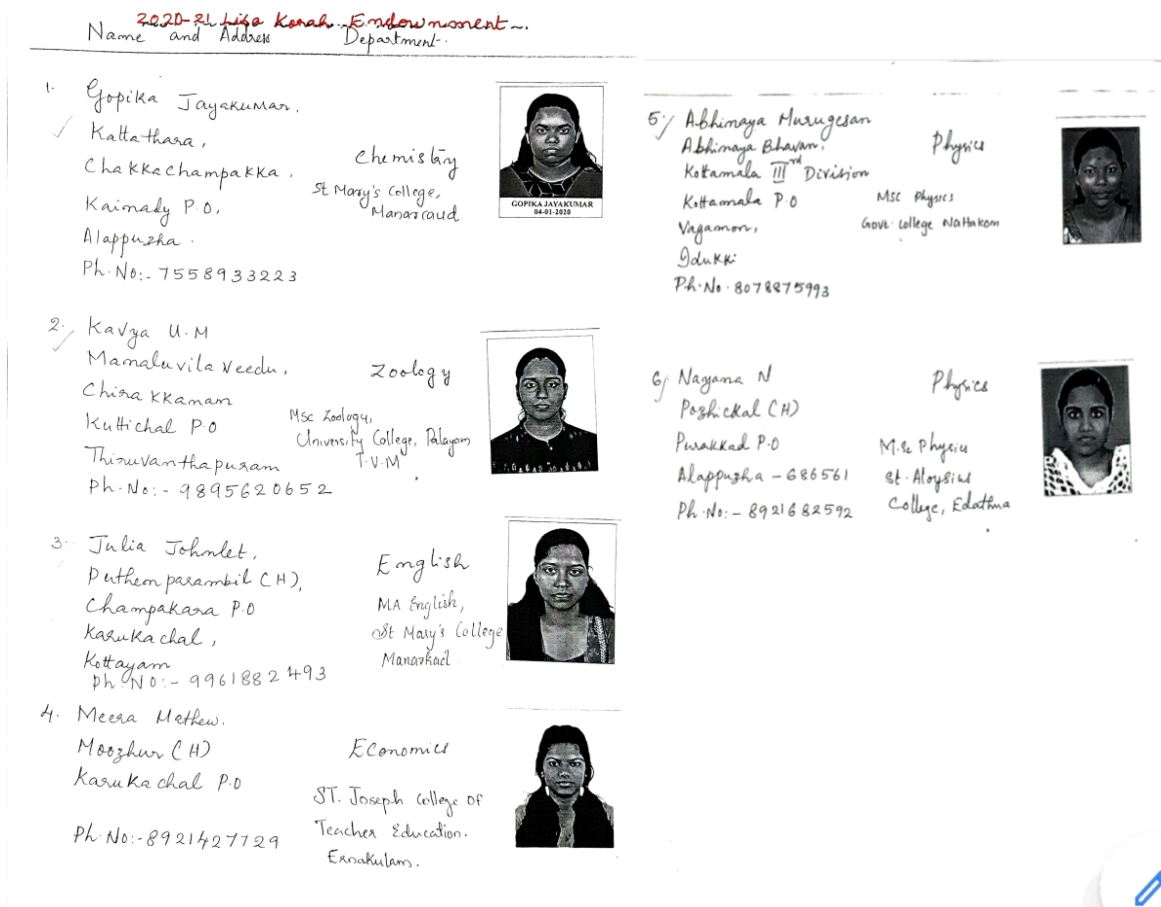 2020-21 Lisa Korah Endownment
Name and Address Department
1. Gopika Jayakumar.
Kattathara,
Chakkachampakka.
Kainady P.O,
Alappuzha.
Ph.No:- 7558933223
Chemistry
St Mary's College,
Manarcaud
GOPIKA JAYAKUMAR
04-01-2020
2. Kavya U.M
Mamaluvila Veedu,
Chirakkanam
Kuttichal P.O
Thiruvanthapuram
Ph.No:- 9895620652
Zoology
Msc Zoology,
University College, Palayam
T.V.M
3. Julia Johnlet,
Puthenparambil (H),
Champakara P.O
Karukachal,
Kottayam
Ph.NO:- 9961882493
English
MA English,
St Mary's College
Manarkad
4. Meera Mathew.
Moozhur (H)
Karukachal P.O
Ph.No:- 8921427729
Economics
ST. Joseph College Of
Teacher Education.
Ernakulam.
5. Abhimaya Murugesan
Abhimaya Bhavan,
Kottamala IIIrd Division
Kottamala P.O
Vagamon,
Idukki
Ph.No. 8078875993
Physics
Msc Physics
Govt. College Nattakom
6) Nayana N
Pozhickal (H)
Purakkad P.O
Alappuzha - 686561
Ph.No:- 8921682592
Physics
M.Sc Physics
St. Aloysius
College, Edathua